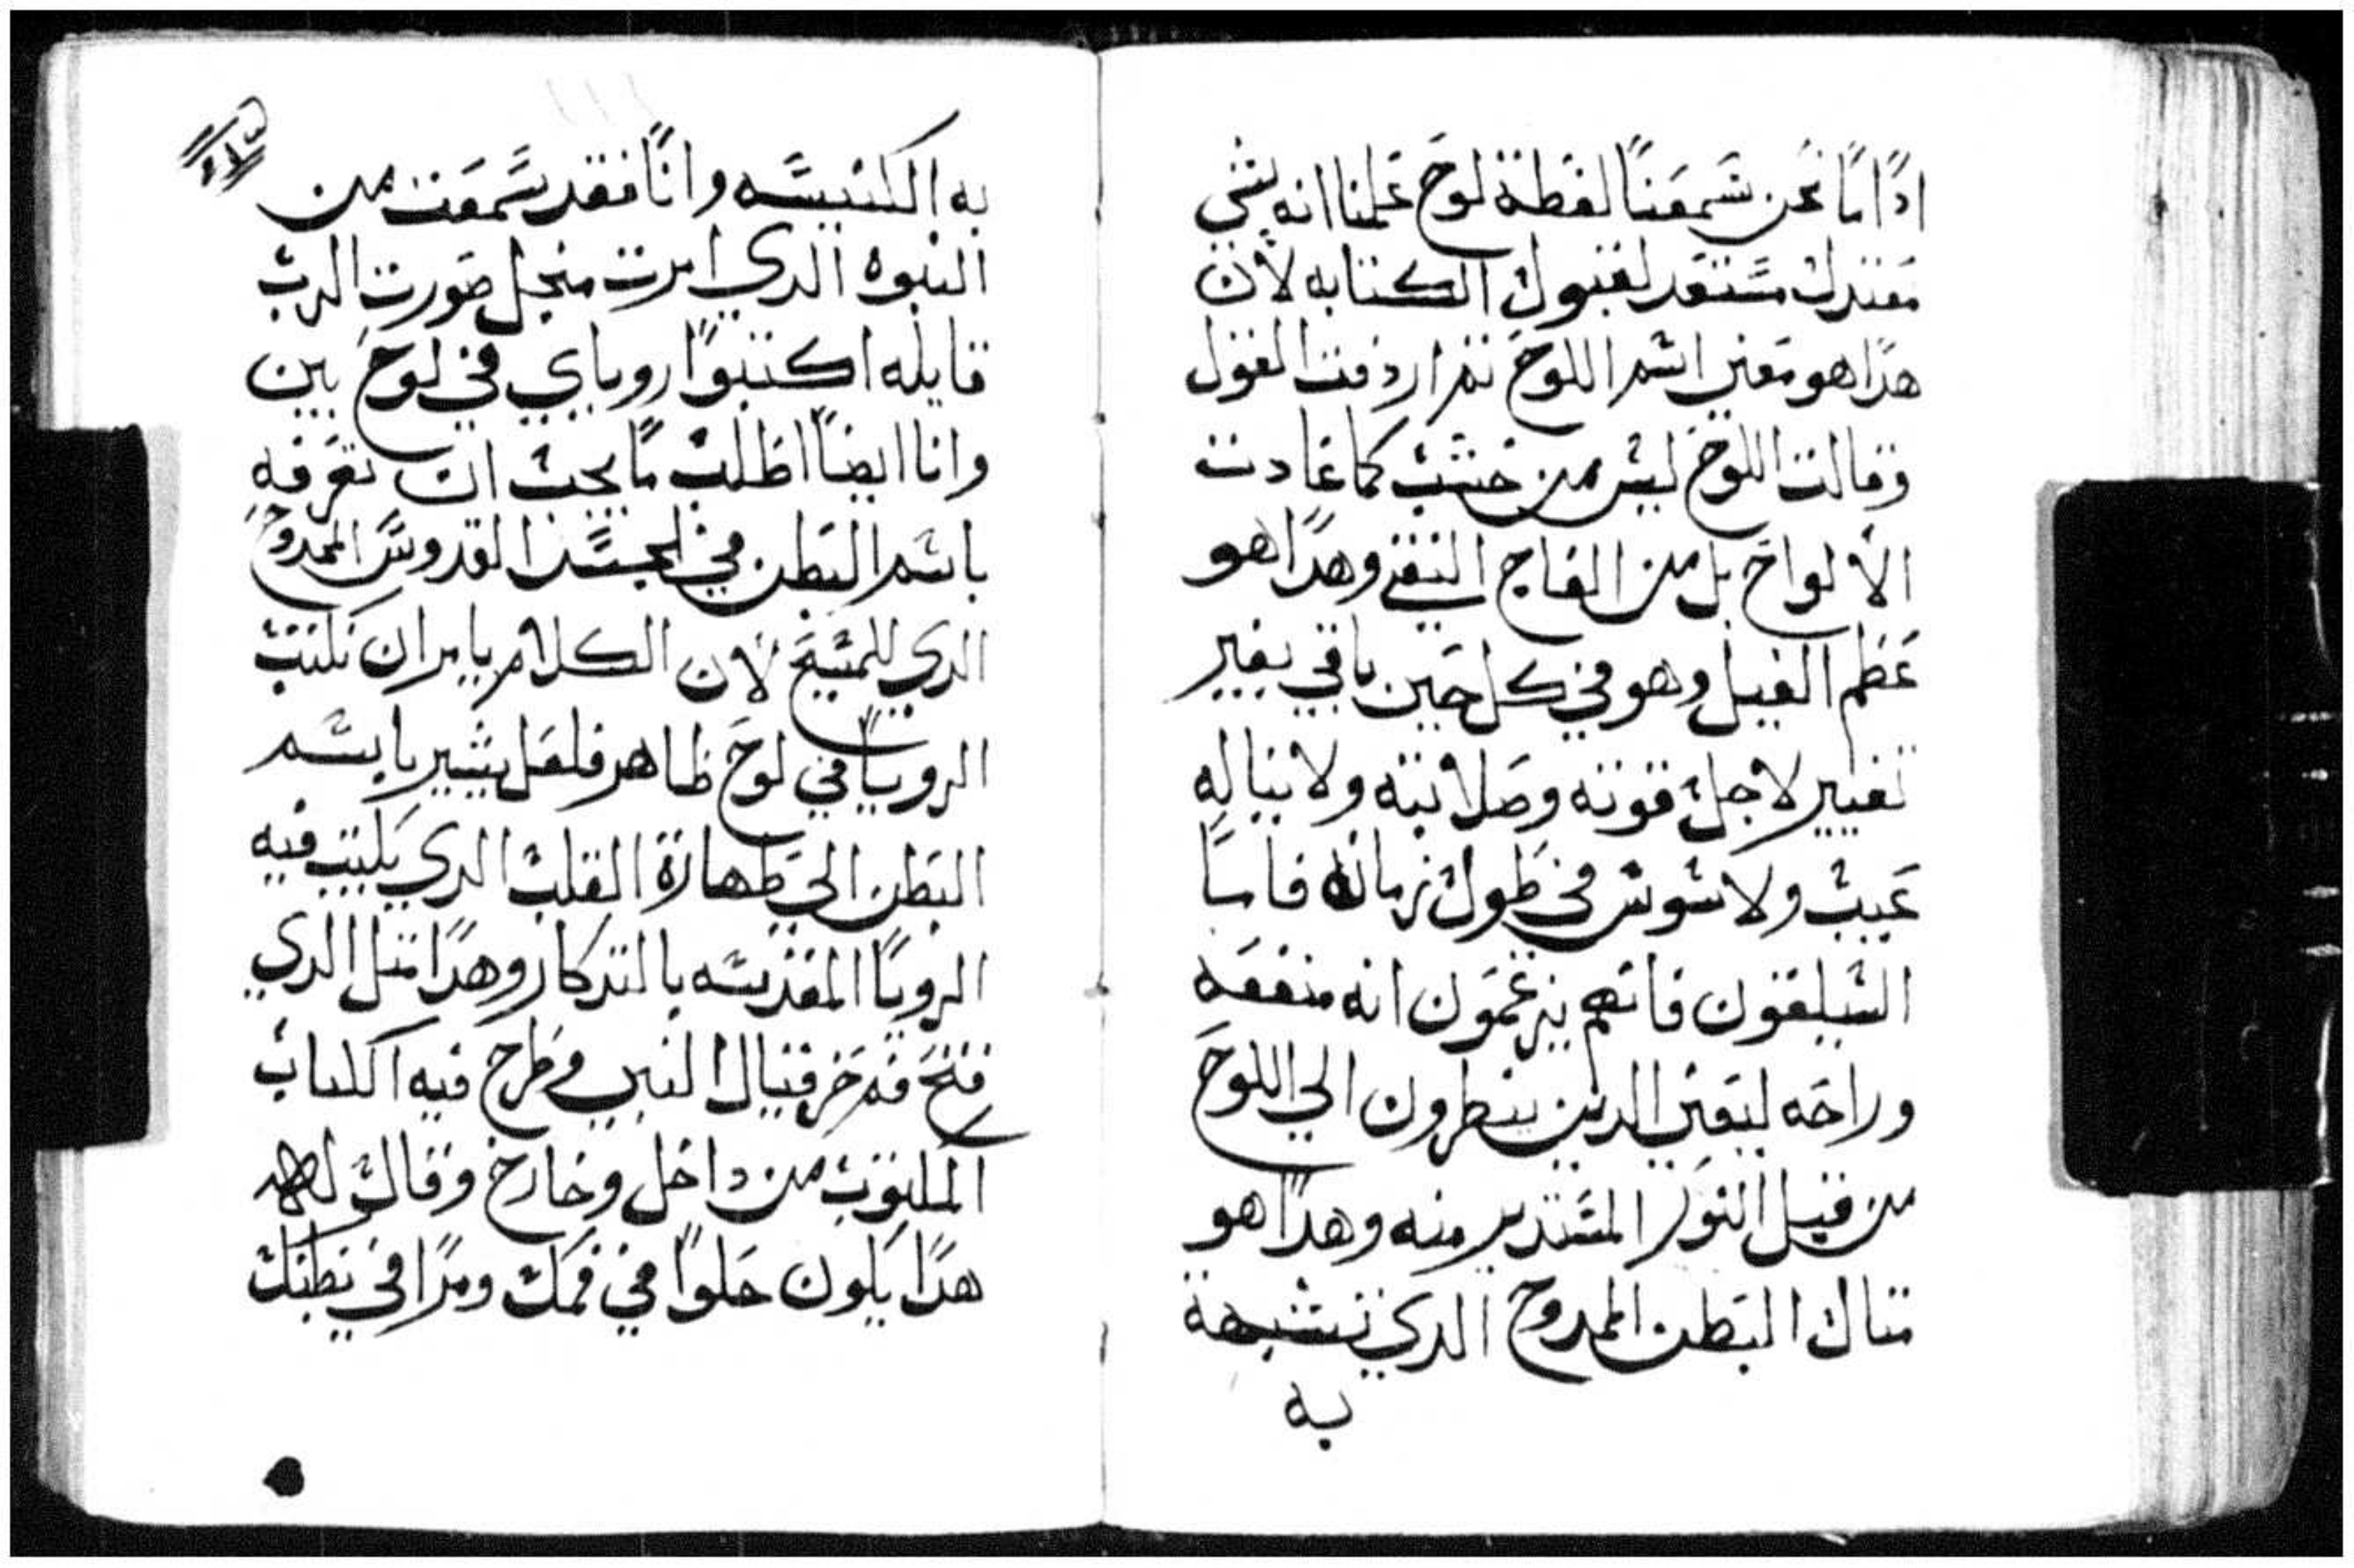 ادا ما نحن سمعنا لفظة لوح علمنا انه شي
معتدل مستعد لقبول الكتابه لأن
هدا هو معني اسم اللوح تم اردفت القول
وقالت اللوح ليس من خشب كما عادت
الألواح بل من العاج النقي وهدا هو
عظم الفيل وهو في كل حين باقي بغير
تغيير لاجل قوته وصلابته ولا يناله
عيب ولا شوش في طول زمانه فاما
السليقون فانهم يزعمون انه منفعه
وراحه ليعني الدين ينظرون الي اللوح
من قبل النور المستدير منه وهدا هو
متال البطن الممدوح الدي تشبهة
به
به الكنيسه وانا فقد سمعت من
النبوه الدي امرت منجل صورت الرب
قايله اكتبوا روياي في لوح بين
وانا ايضا اطلب ما يجب ان تعرفه
باسم البطن في الجسد القدوس الممدوح
الدي للمسيح لان الكلام يامر ان تكتب
الرويا في لوح ظاهر فلعل يشير باسم
البطن الي طهارة القلب الدي يكتب فيه
الرويا المقدسه بالتدكار وهدا متل الدي
فتح فم حزقيال النبي وطرح فيه الكتاب
المكتوب من داخل وخارج وقال له
هدا يكون حلوا في فمك ومرا في بطنك